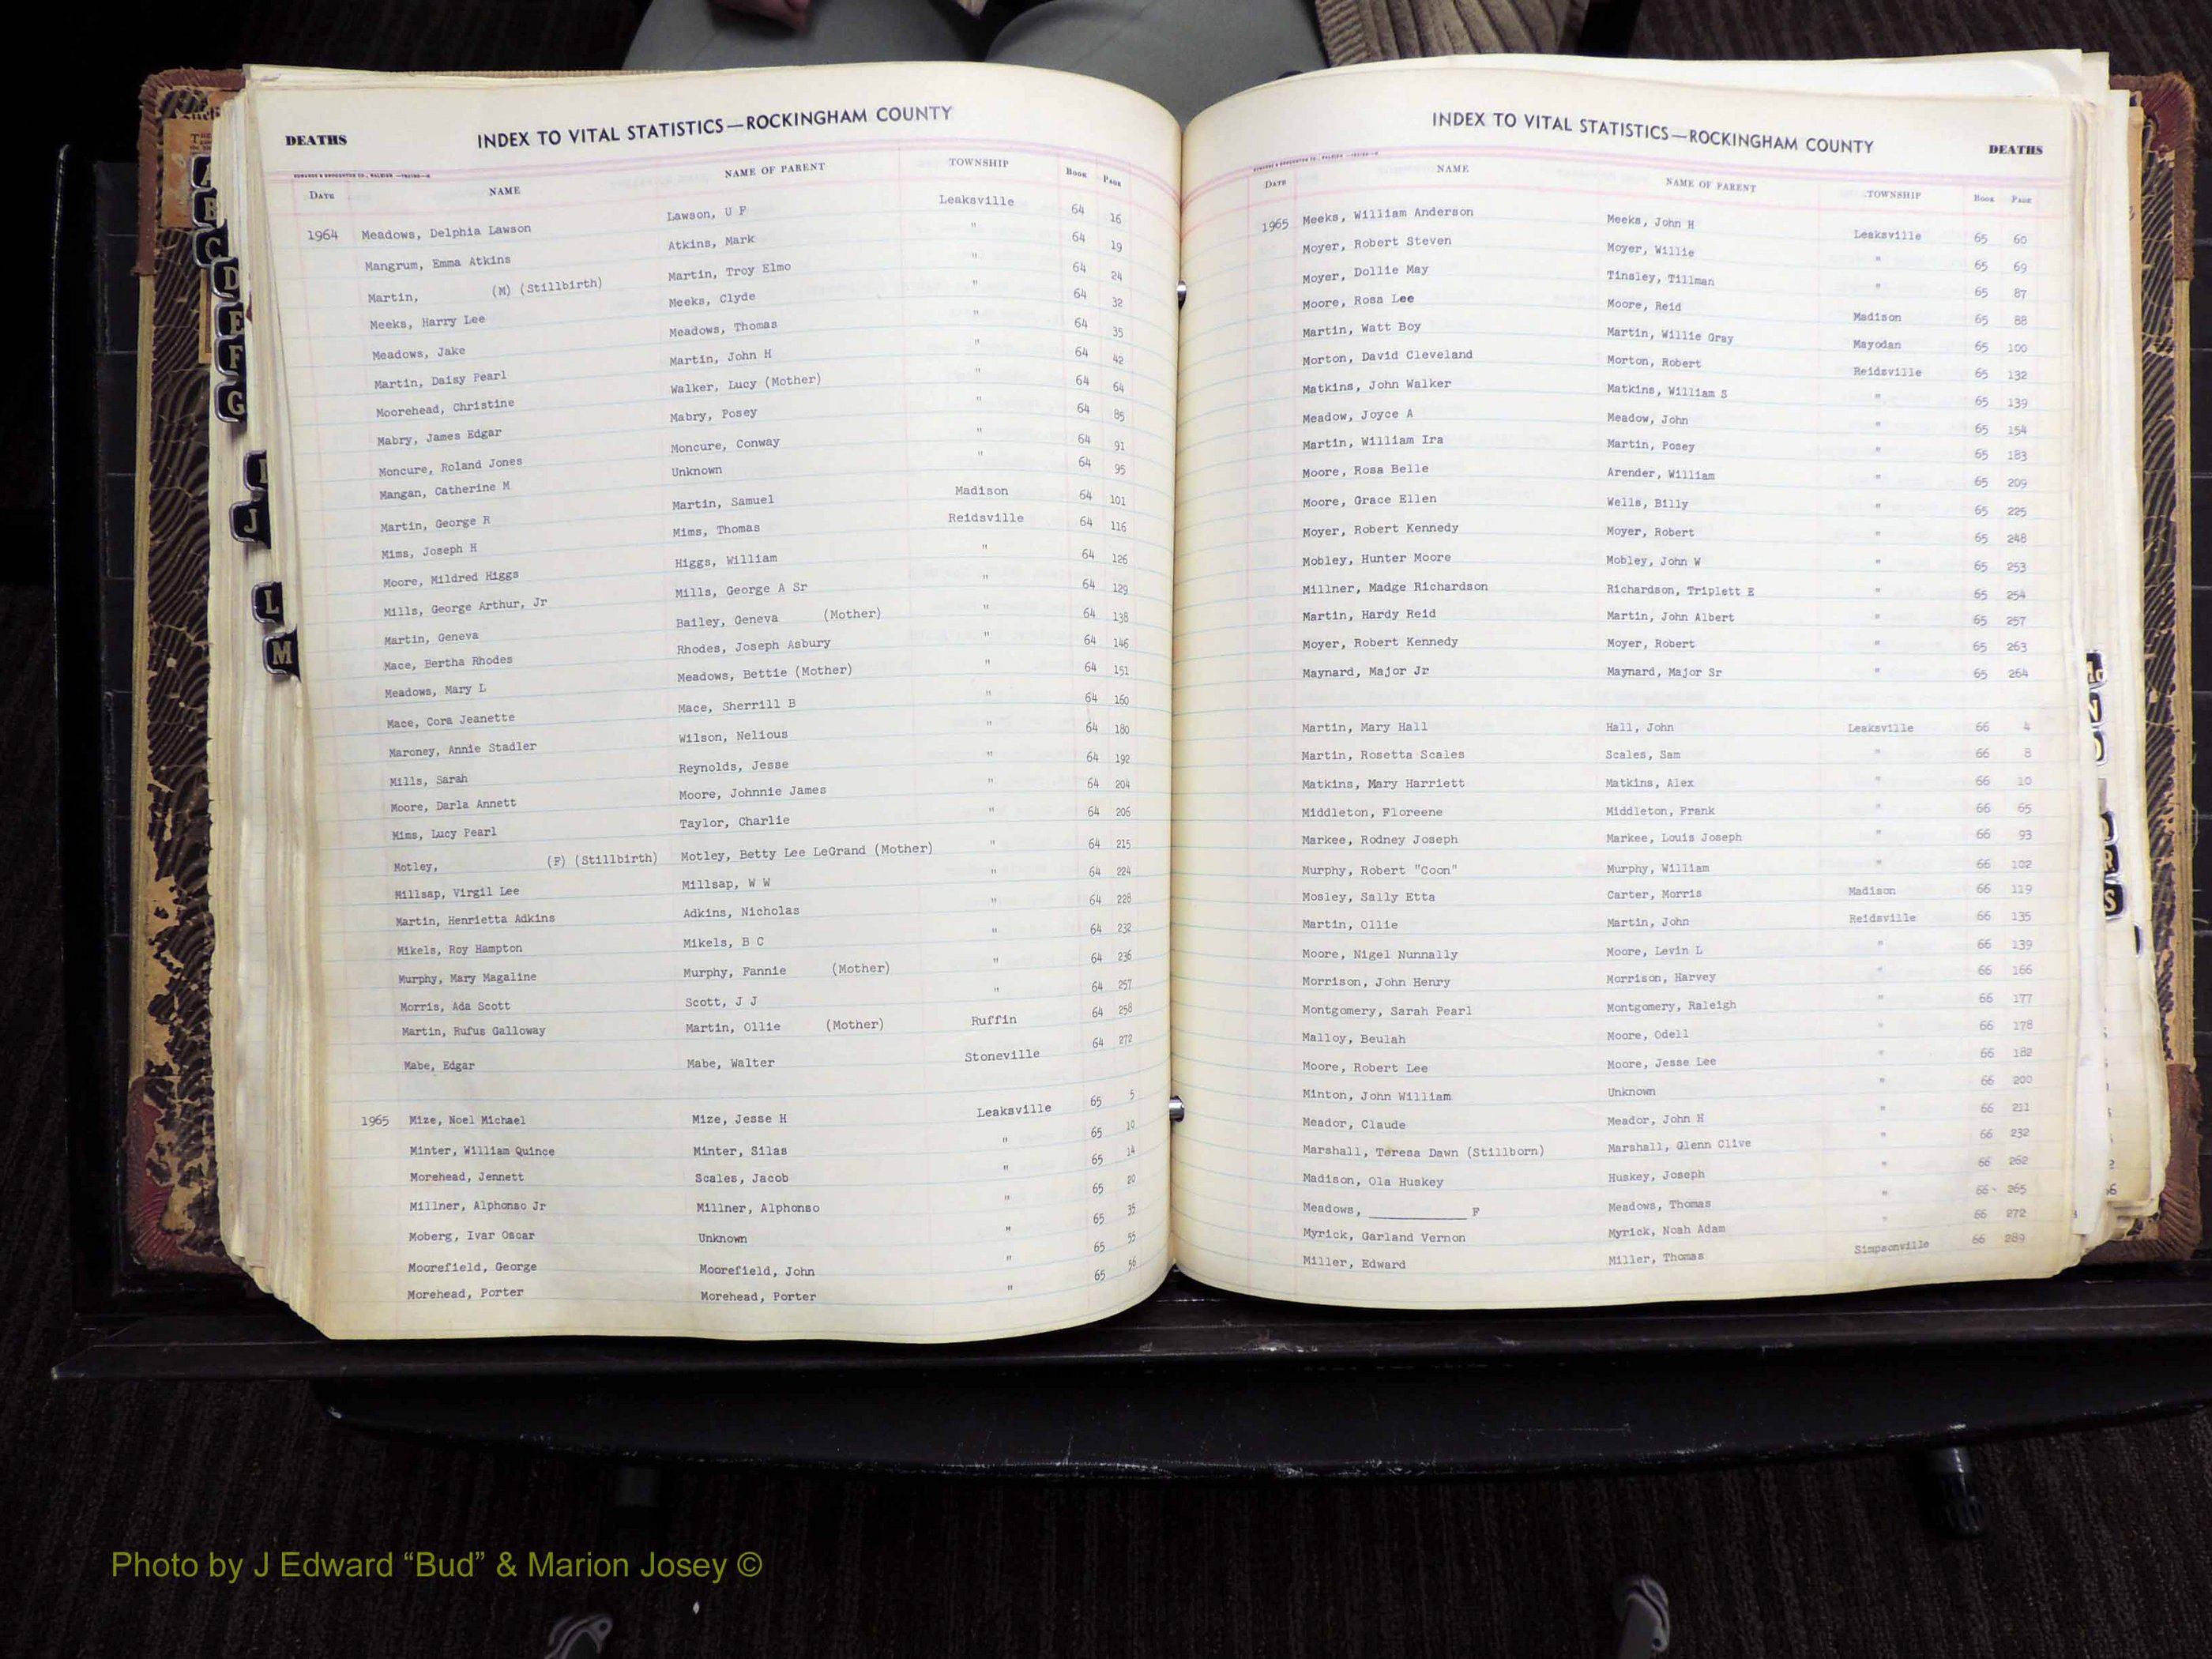 DEATHS INDEX TO VITAL STATISTICS—ROCKINGHAM COUNTY
DATE NAME NAME OF PARENT TOWNSHIP BOOK PAGE
1964 Meadows, Delphia Lawson Lawson, U F Leaksville 64 16
Mangrum, Emma Atkins Atkins, Mark " 64 19
Martin, (M) (Stillbirth) Martin, Troy Elmo " 64 24
Meeks, Harry Lee Meeks, Clyde " 64 32
Meadows, Jake Meadows, Thomas " 64 35
Martin, Daisy Pearl Martin, John H " 64 42
Moorehead, Christine Walker, Lucy (Mother) " 64 64
Mabry, James Edgar Mabry, Posey " 64 85
Moncure, Roland Jones Moncure, Conway " 64 91
Mangan, Catherine M Unknown " 64 95
Martin, George R Martin, Samuel Madison 64 101
Mims, Joseph H Mims, Thomas Reidsville 64 116
Moore, Mildred Higgs Higgs, William " 64 126
Mills, George Arthur, Jr Mills, George A Sr " 64 129
Martin, Geneva Bailey, Geneva (Mother) " 64 138
Mace, Bertha Rhodes Rhodes, Joseph Asbury " 64 146
Meadows, Mary L Meadows, Bettie (Mother) " 64 151
Mace, Cora Jeanette Mace, Sherrill B " 64 160
Maroney, Annie Stadler Wilson, Nelious " 64 180
Mills, Sarah Reynolds, Jesse " 64 192
Moore, Darla Annett Moore, Johnnie James " 64 204
Mims, Lucy Pearl Taylor, Charlie " 64 206
Motley, (F) (Stillbirth) Motley, Betty Lee LeGrand (Mother) " 64 215
Millsap, Virgil Lee Millsap, W W " 64 224
Martin, Henrietta Adkins Adkins, Nicholas " 64 228
Mikels, Roy Hampton Mikels, B C " 64 232
Murphy, Mary Magaline Murphy, Fannie (Mother) " 64 236
Morris, Ada Scott Scott, J J " 64 257
Martin, Rufus Galloway Martin, Ollie (Mother) Ruffin 64 258
Mabe, Edgar Mabe, Walter Stoneville 64 272
1965 Mize, Noel Michael Mize, Jesse H Leaksville 65 5
Minter, William Quince Minter, Silas " 65 10
Morehead, Jennett Scales, Jacob " 65 14
Millner, Alphonso Jr Millner, Alphonso " 65 20
Moberg, Ivar Oscar Unknown " 65 35
Moorefield, George Moorefield, John " 65 55
Morehead, Porter Morehead, Porter " 65 56
INDEX TO VITAL STATISTICS—ROCKINGHAM COUNTY DEATHS
DATE NAME NAME OF PARENT TOWNSHIP BOOK PAGE
1965 Meeks, William Anderson Meeks, John H Leaksville 65 60
Moyer, Robert Steven Moyer, Willie " 65 69
Moyer, Dollie May Tinsley, Tillman " 65 87
Moore, Rosa Lee Moore, Reid Madison 65 88
Martin, Watt Boy Martin, Willie Gray Mayodan 65 100
Morton, David Cleveland Morton, Robert Reidsville 65 132
Matkins, John Walker Matkins, William S " 65 139
Meadow, Joyce A Meadow, John " 65 154
Martin, William Ira Martin, Posey " 65 183
Moore, Rosa Belle Arender, William " 65 209
Moore, Grace Ellen Wells, Billy " 65 225
Moyer, Robert Kennedy Moyer, Robert " 65 248
Mobley, Hunter Moore Mobley, John W " 65 253
Millner, Madge Richardson Richardson, Triplett E " 65 254
Martin, Hardy Reid Martin, John Albert " 65 257
Moyer, Robert Kennedy Moyer, Robert " 65 263
Maynard, Major Jr Maynard, Major Sr " 65 264
Martin, Mary Hall Hall, John Leaksville 66 4
Martin, Rosetta Scales Scales, Sam " 66 8
Matkins, Mary Harriett Matkins, Alex " 66 10
Middleton, Floreene Middleton, Frank " 66 65
Markee, Rodney Joseph Markee, Louis Joseph " 66 93
Murphy, Robert "Coon" Murphy, William " 66 102
Mosley, Sally Etta Carter, Morris Madison 66 119
Martin, Ollie Martin, John Reidsville 66 135
Moore, Nigel Nunnally Moore, Levin L " 66 139
Morrison, John Henry Morrison, Harvey " 66 166
Montgomery, Sarah Pearl Montgomery, Raleigh " 66 177
Malloy, Beulah Moore, Odell " 66 178
Moore, Robert Lee Moore, Jesse Lee " 66 182
Minton, John William Unknown " 66 200
Meador, Claude Meador, John H " 66 211
Marshall, Teresa Dawn (Stillborn) Marshall, Glenn Clive " 66 232
Madison, Ola Huskey Huskey, Joseph " 66 262
Meadows, ____________ F Meadows, Thomas " 66 265
Myrick, Garland Vernon Myrick, Noah Adam " 66 272
Miller, Edward Miller, Thomas Simpsonville 66 289
A
B
C
D
E
F
G
J
L
M
N
R
S
Photo by J Edward “Bud” & Marion Josey ©